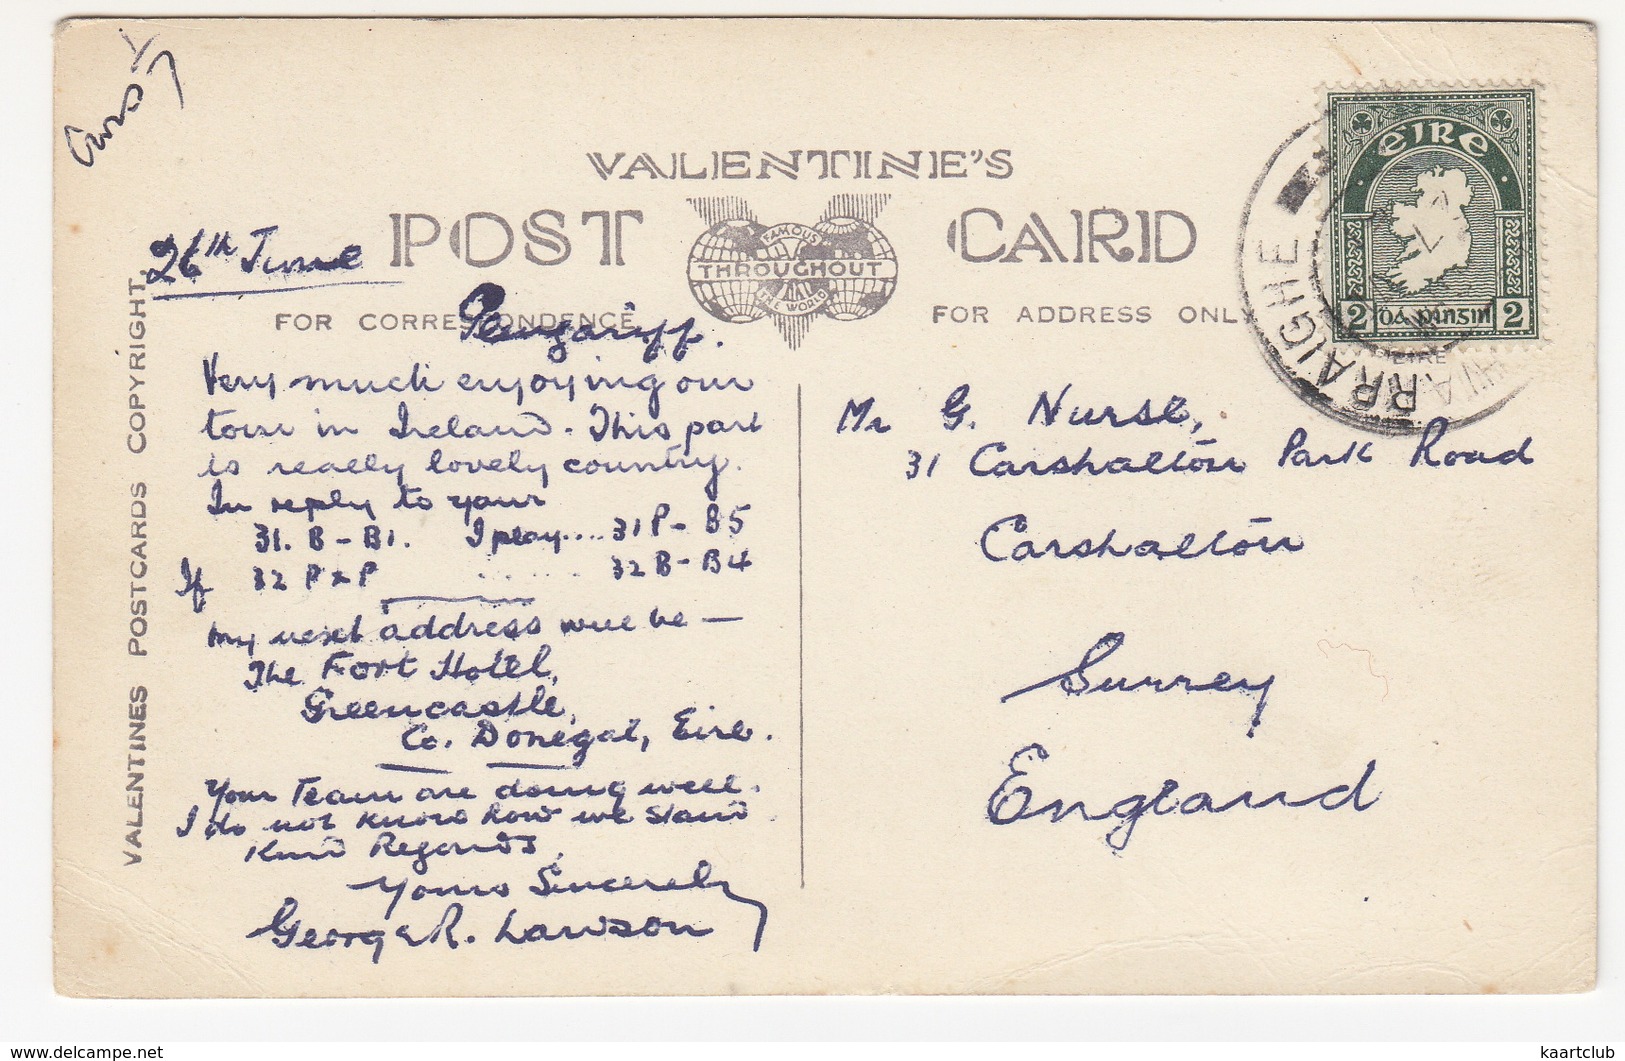 VALENTINE'S
POST CARD
FAMOUS
THROUGHOUT
THE WORLD
FOR CORRESPONDENCE
FOR ADDRESS ONLY
VALENTINES POSTCARDS COPYRIGHT.
26th June
Glengariff.
Very much enjoying our
tour in Ireland. This part
is really lovely country.
In reply to your
31. B - B1. I play .... 31 P - B5
If 32 P x P ........ 32 B - B4
My next address will be —
The Fort Hotel,
Greencastle,
Co. Donegal, Eire.
Your Team are doing well.
I do not know how we stand.
Kind Regards,
Yours Sincerely
George R. Lawson
Mr G. Nurse,
31 Carshalton Park Road
Carshalton
Surrey
England
EIRE
2 dá pingin 2
RRAIGHE
EIRE
kaartclub